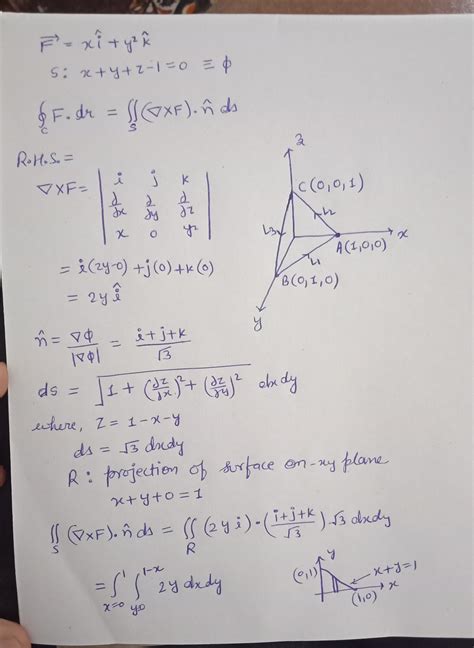 F⃗ = xî + y²k̂
S: x+y+z-1=0 ≡ ϕ
∮_C F.dr = ∬_S (∇×F).n̂ ds
R.H.S. =
∇×F = | i j k |
| ∂/∂x ∂/∂y ∂/∂z |
| x 0 y² |
= i(2y-0)+j(0)+k(0)
= 2y î
z
C(0,0,1)
L2
L3
x
A(1,0,0)
L1
B(0,1,0)
y
n̂ = ∇ϕ/|∇ϕ| = (i+j+k)/√3
ds = √(1+(∂z/∂x)²+(∂z/∂y)²) dxdy
where, z = 1-x-y
ds = √3 dxdy
R: projection of surface on-xy plane
x+y+0=1
∬_S (∇×F).n̂ ds = ∬_R (2y i)·((i+j+k)/√3) √3 dxdy
= ∫_{x=0}^{1} ∫_{y=0}^{1-x} 2y dxdy
y
(0,1)
x+y=1
x
(1,0)